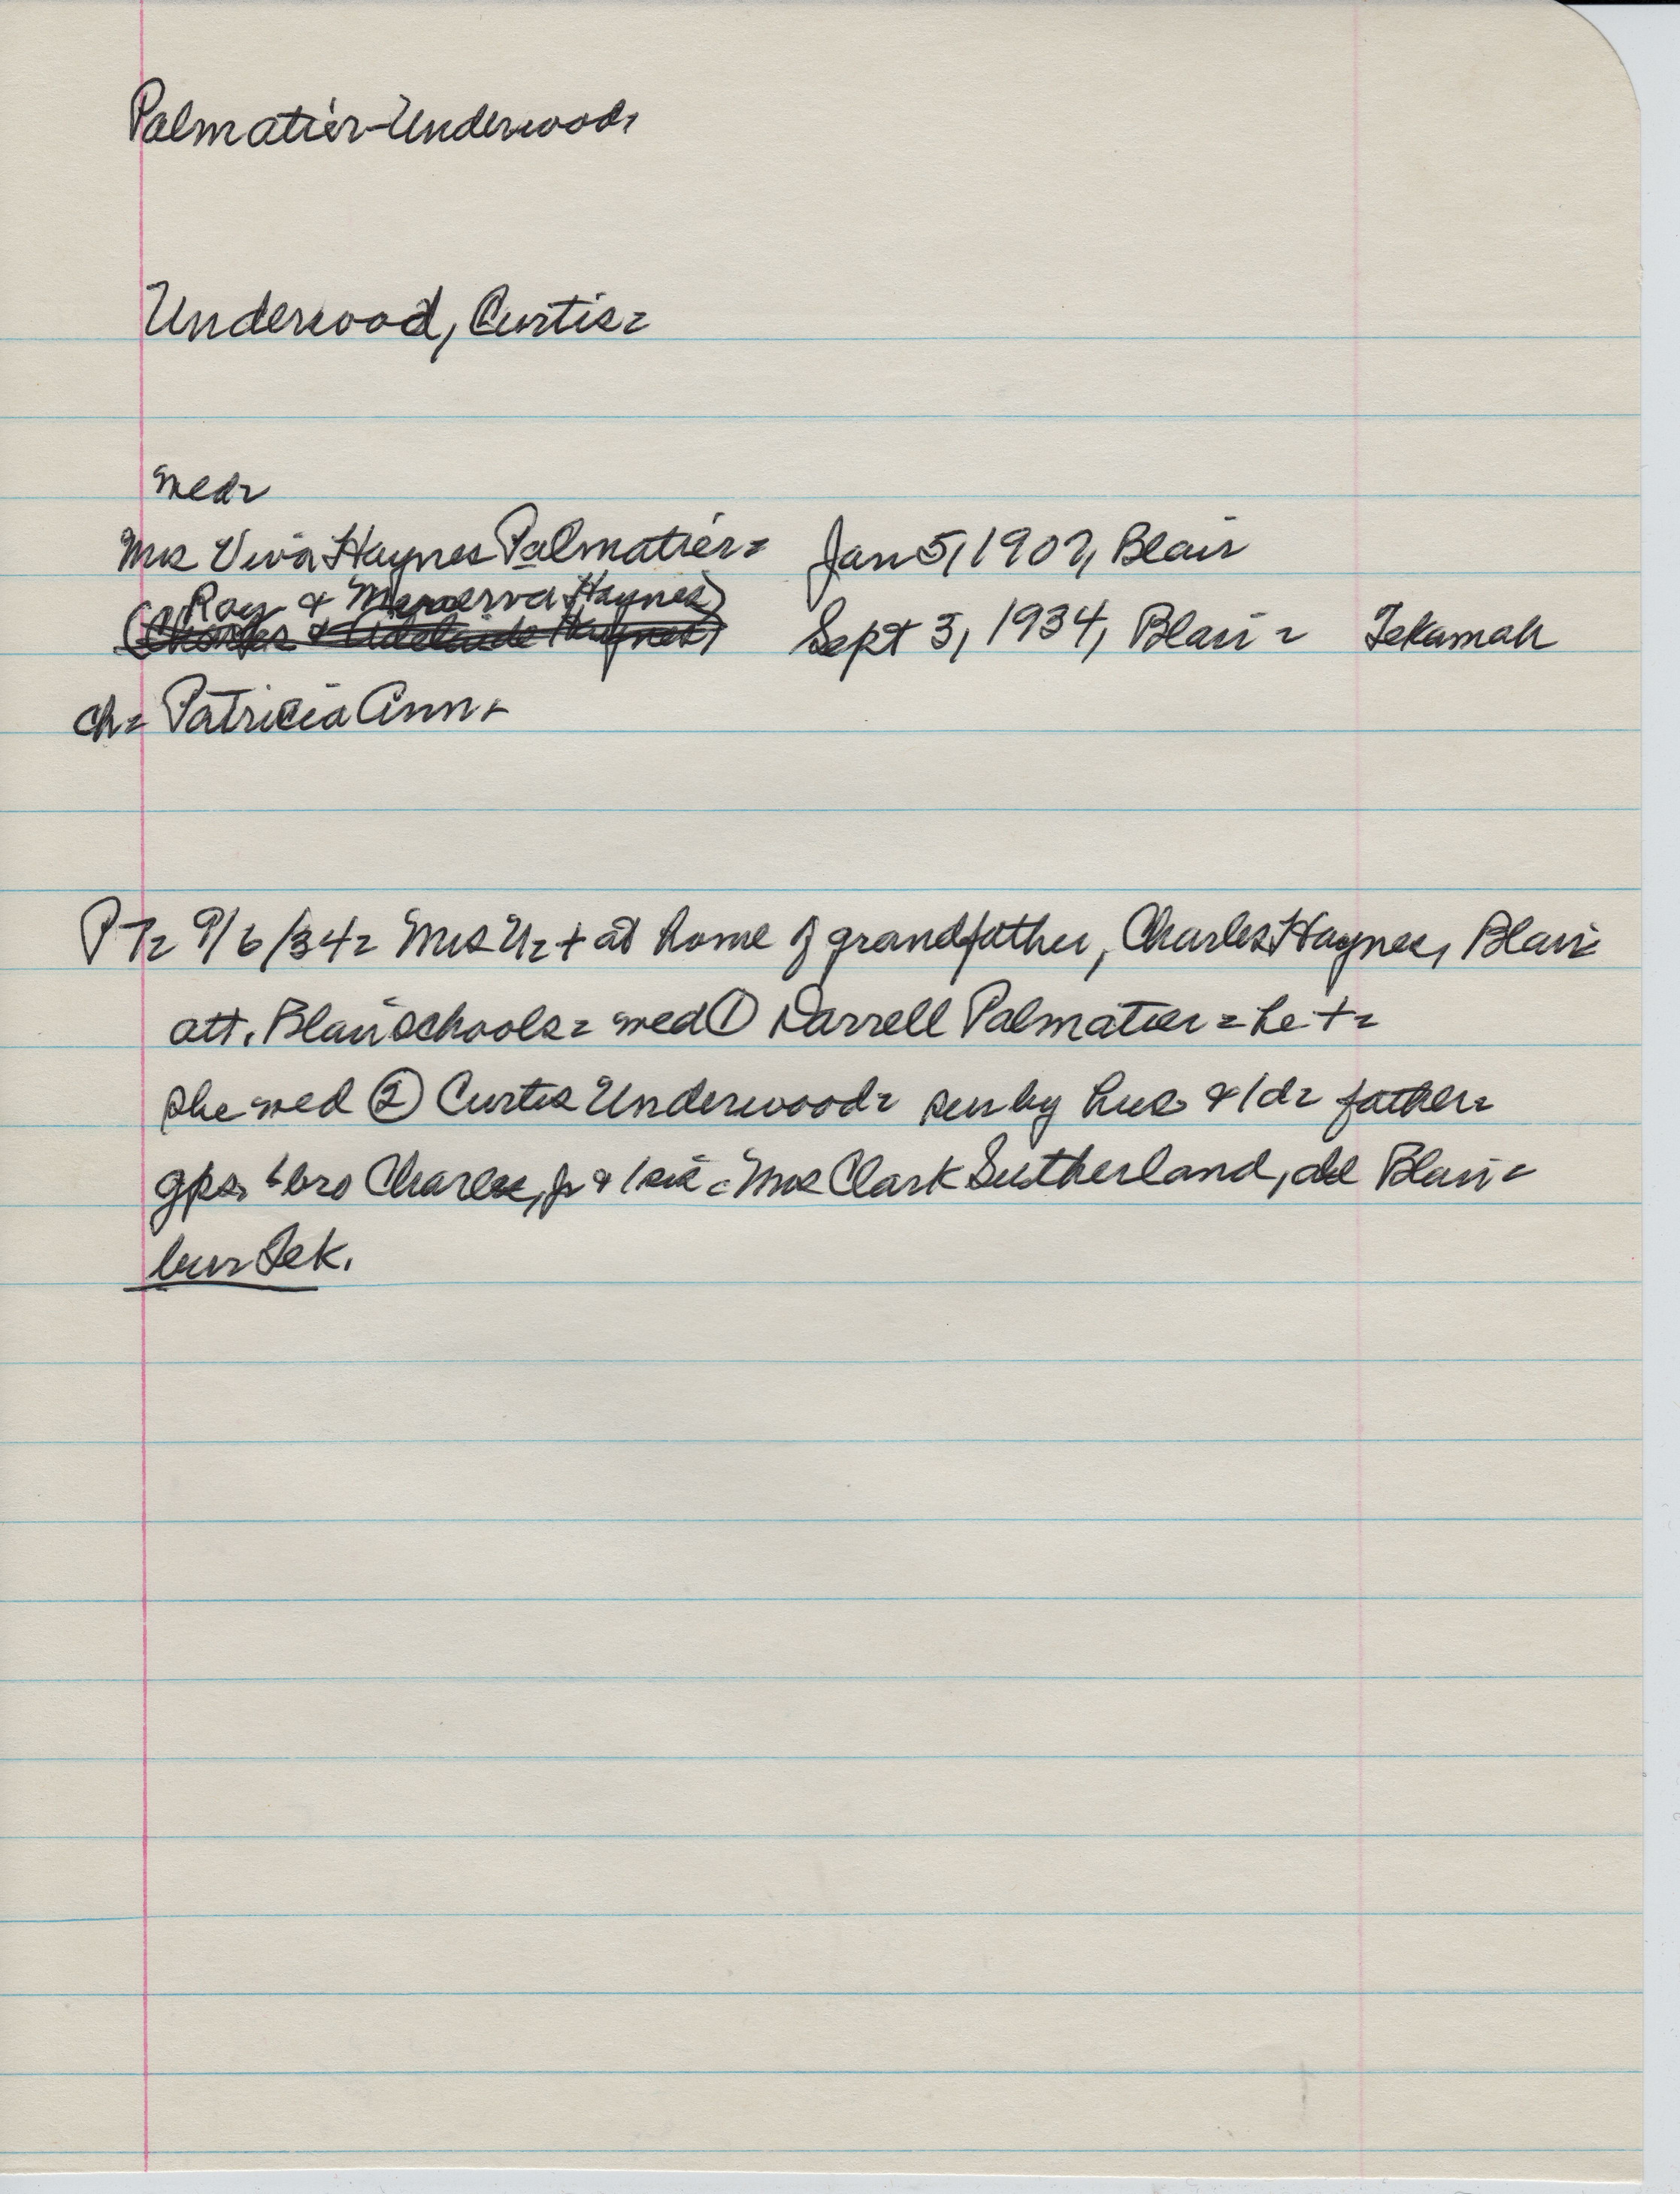 Palmatier-Underwood,
Underwood, Curtis=
wed=
Mrs Viva Haynes Palmatier= Jan 5, 1902, Blair
(Ray & Menerva Haynes)
(Charles & Adelaide Haynes) Sept 3, 1934, Blair = Tekamah
ch= Patricia Ann+
PT= 9/6/34= Mrs U= + at home of grandfather, Charles Haynes, Blair
att. Blair schools= wed ① Darrell Palmatier = he +=
she wed ② Curtis Underwood= sur by hus & 1 d= father=
gps. bro Charles, Jr & 1 sis = Mrs Clark Sutherland, all Blair=
bur Tek.